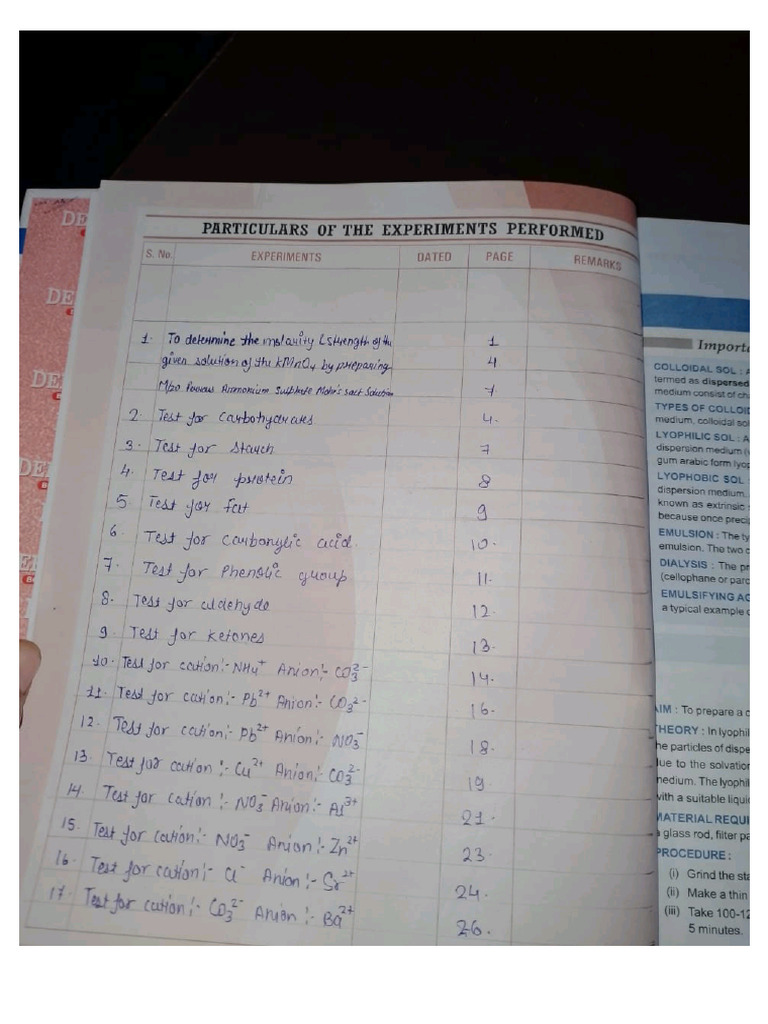 DE
DE
DE
DE
DE
PARTICULARS OF THE EXPERIMENTS PERFORMED
S. No. EXPERIMENTS DATED PAGE REMARKS
1. To determine the molarity (strength of the 1
given solution of the KMnO4 by preparing 4
M/20 Ammonium Sulphate Mohr's salt Solution 7.
2. Test for Carbohydrates 4.
3. Test for Starch 7
4. Test for protein 8
5. Test for fat 9
6. Test for Carbonylic acid. 10.
7. Test for Phenolic group 11.
8. Test for aldehyde 12.
9. Test for Ketones 13.
10. Test for cation:- NH4+ Anion:- CO3 2-
14.
11. Test for cation:- Pb2+ Anion:- CO3 2-
16.
12. Test for cation:- Pb2+ Anion:- NO3-
18.
13. Test for cation:- Cu2+ Anion:- CO3 2-
19.
14. Test for cation:- NO3- Anion:- Al3+
21.
15. Test for cation:- NO3- Anion:- Zn2+
23.
16. Test for cation:- Cl- Anion:- Sr2+
24.
17. Test for cation:- CO3 2- Anion:- Ba2+
26.
Importa
COLLOIDAL SOL : A
termed as dispersed
medium consist of ch
TYPES OF COLLOID
medium, colloidal so
LYOPHILIC SOL : A
dispersion medium (
gum arabic form lyop
LYOPHOBIC SOL :
dispersion medium.
known as extrinsic s
because once precip
EMULSION : The ty
emulsion. The two c
DIALYSIS : The pr
(cellophane or parc
EMULSIFYING AG
a typical example o
AIM : To prepare a c
THEORY : In lyophil
he particles of dispe
lue to the solvation
nedium. The lyophil
with a suitable liquid
MATERIAL REQUI
a glass rod, filter pa
PROCEDURE :
(i) Grind the sta
(ii) Make a thin
(iii) Take 100-12
5 minutes.